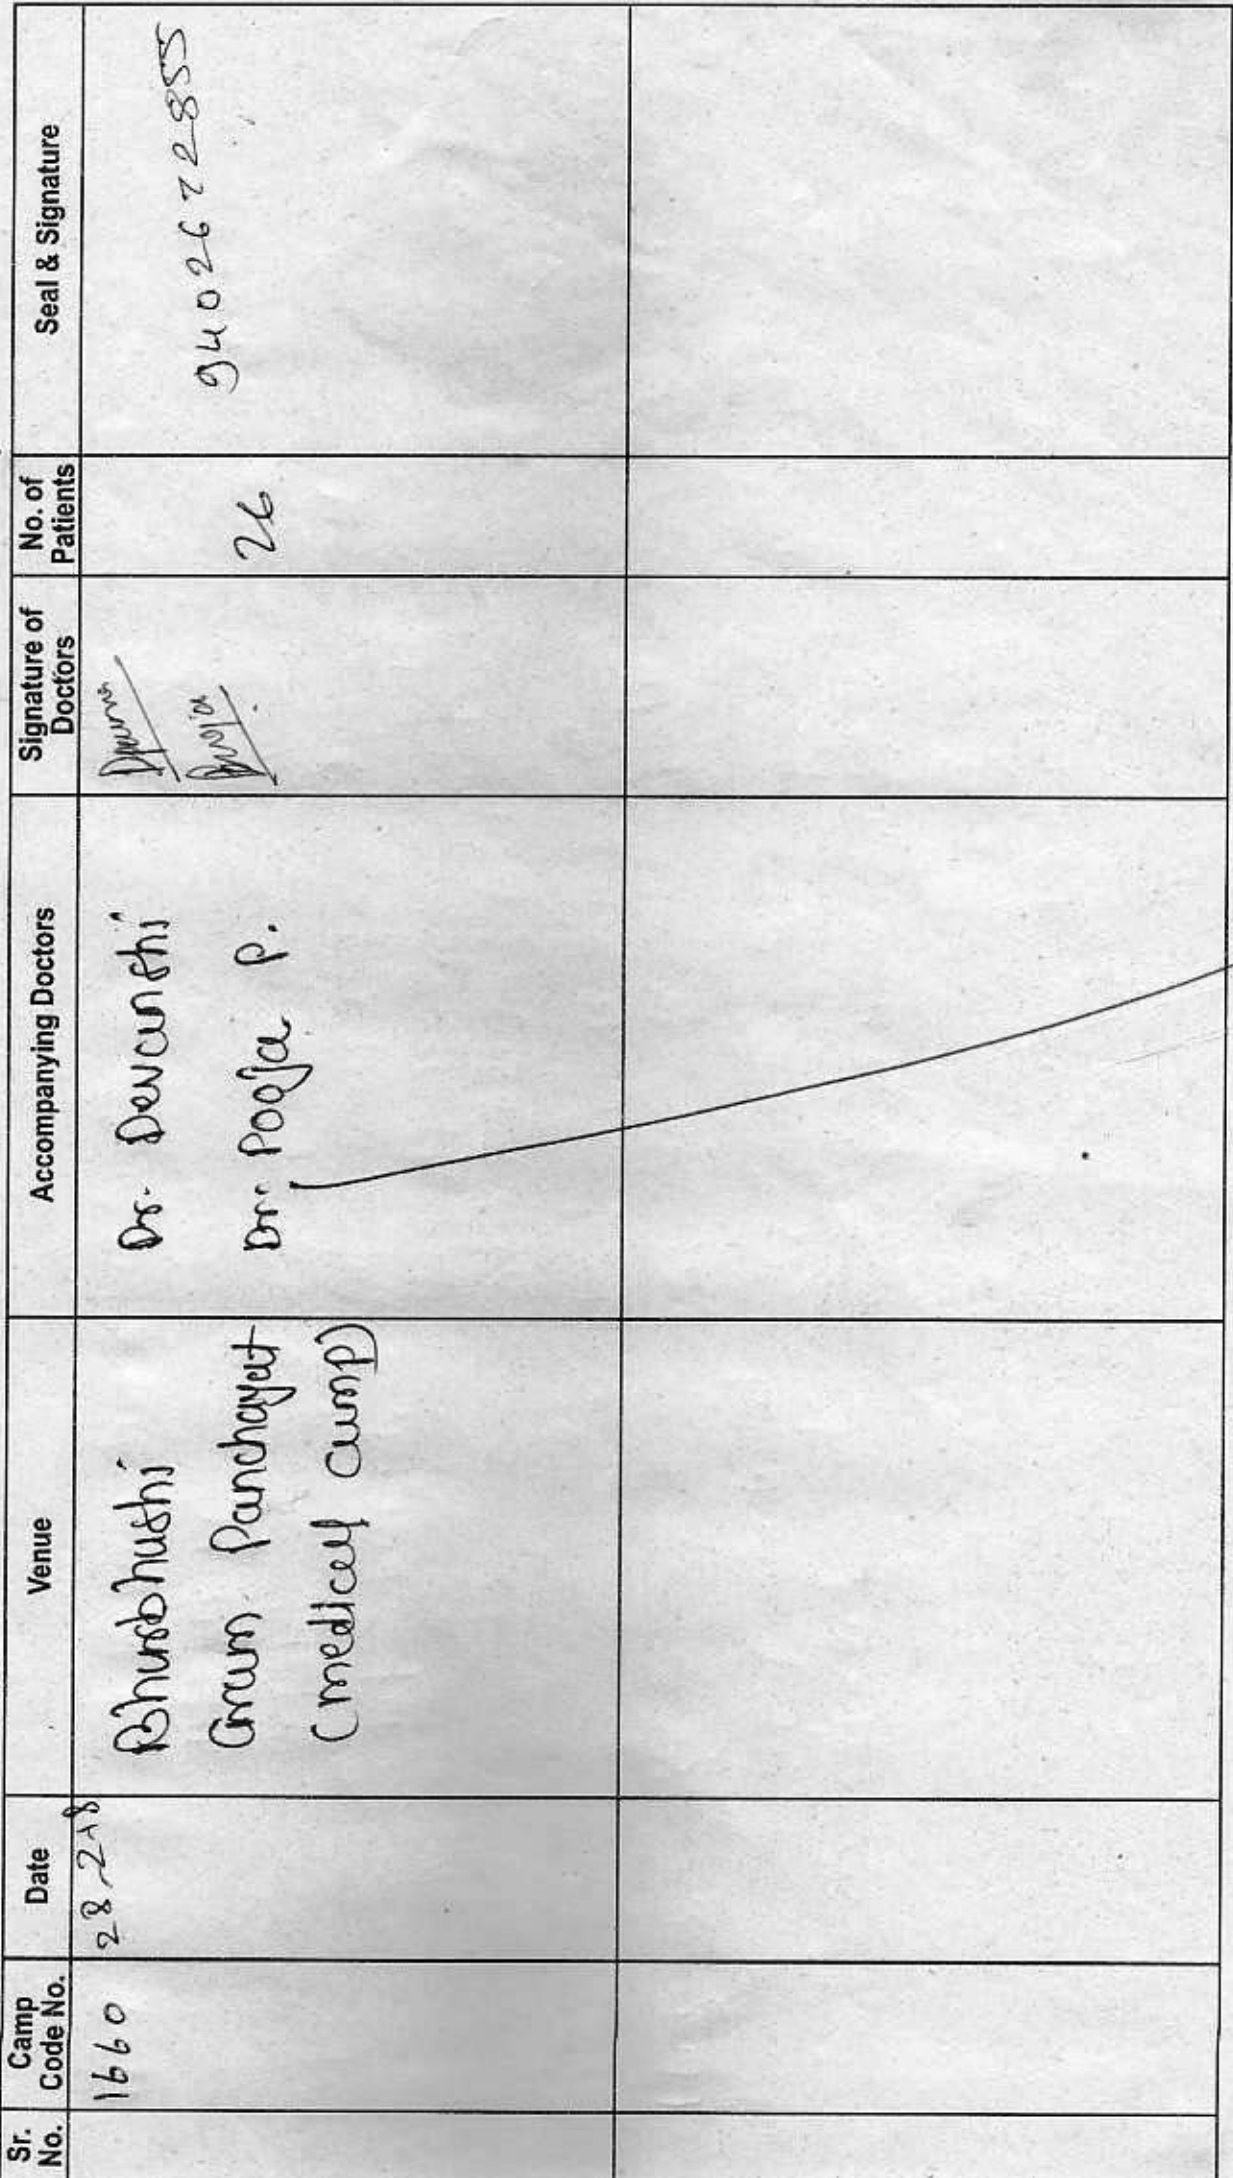 Sr. No.
Camp Code No.
Date
Venue
Accompanying Doctors
Signature of Doctors
No. of Patients
Seal & Signature
1660
28-2-18
Bhurbhushi
Gram Panchayat
(medical camp)
Dr. Devanshi
Dr. Pooja P.
Pooja
26
9402672855